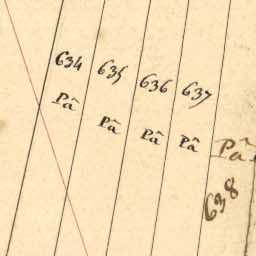 634
Pâ
635
Pâ
636
Pâ
637
Pâ
Pâ
638